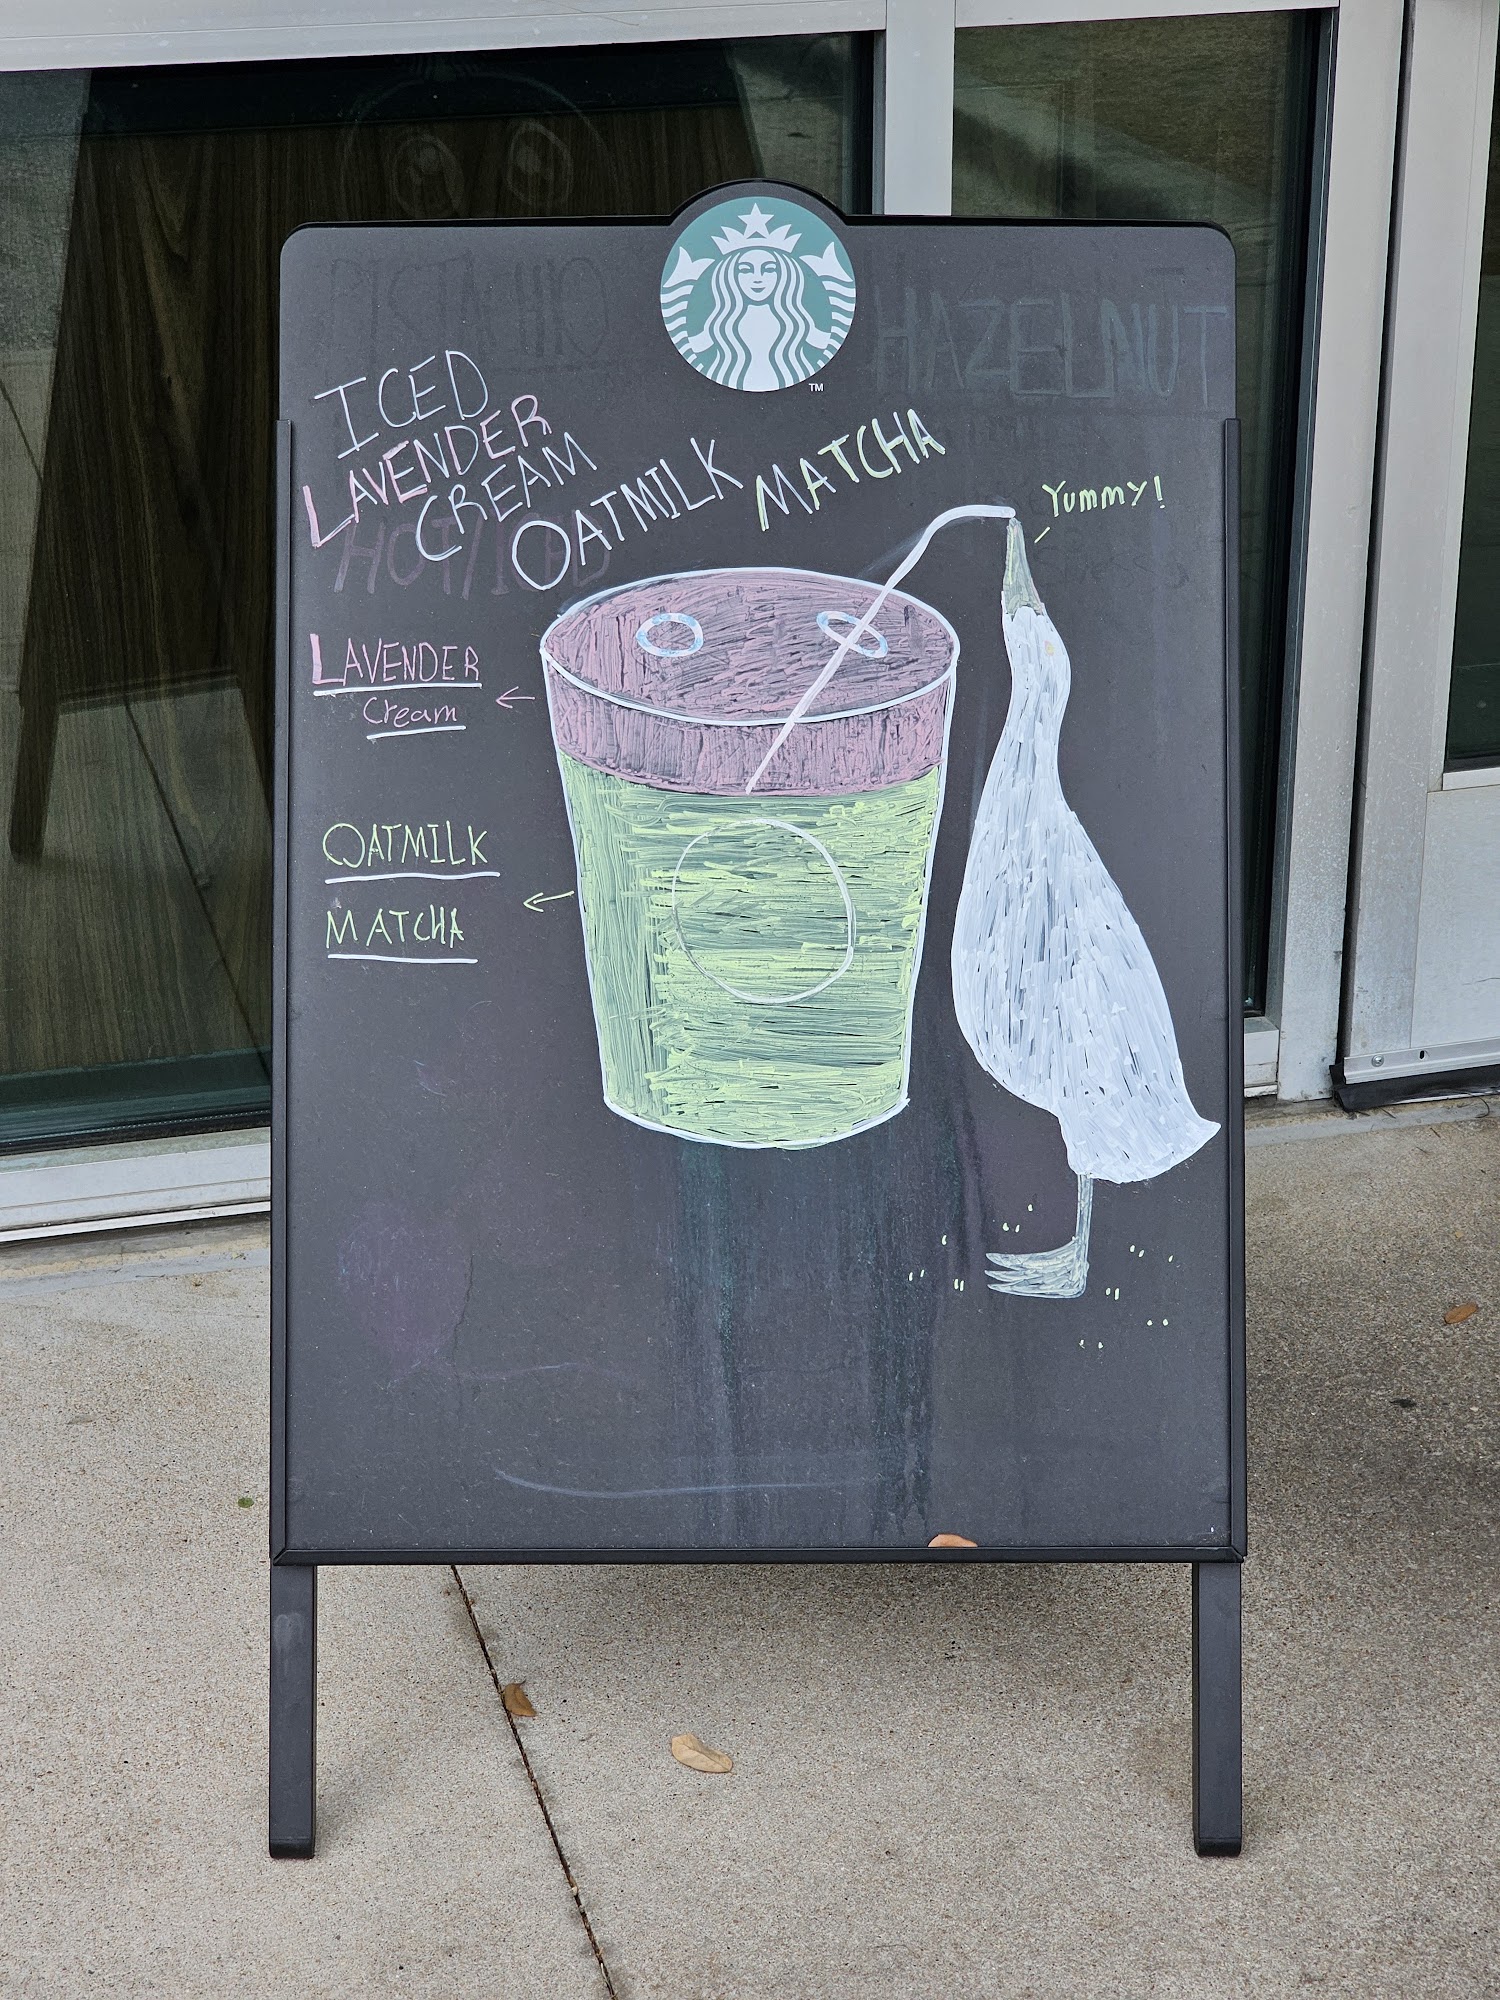 PISTACHIO
HAZELNUT
TM
ICED
LAVENDER
CREAM
OATMILK MATCHA
HOT/ICED
Yummy!
LAVENDER
Cream
OATMILK
MATCHA